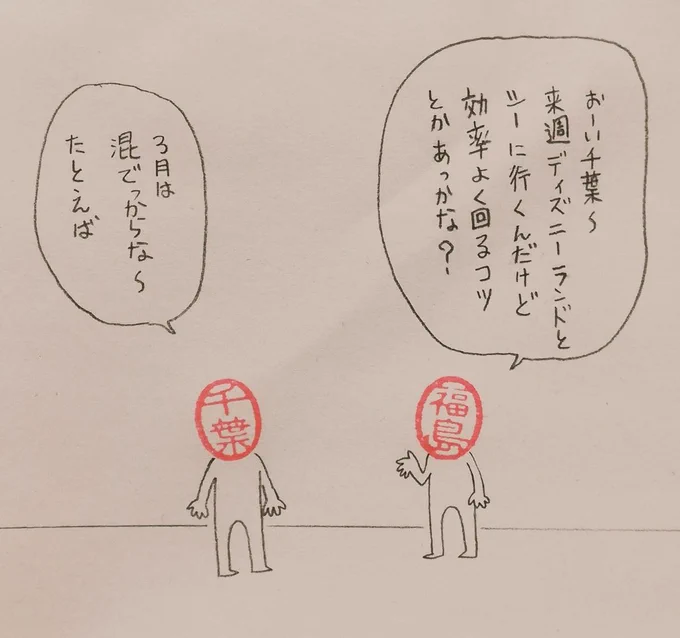 おーい千葉～
来週ディズニーランドと
シーに行くんだけど
効率よく回るコツ
とかあっかな？
3月は
混でっからな～
たとえば
福島
千葉